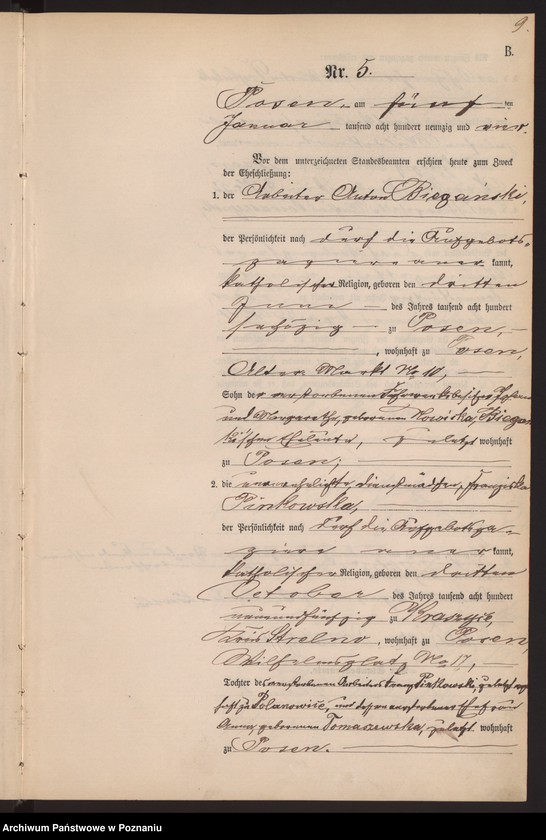 9.
B.
Nr. 5.
Posen, am fünften
Januar tausend acht hundert neunzig und vier.
Vor dem unterzeichneten Standesbeamten erschien heute zum Zweck
der Eheschließung:
1. der Arbeiter Anton Biegański,
der Persönlichkeit nach durch die Aufgebots-
papiere anerkannt,
katholischer Religion, geboren den dritten
Juni des Jahres tausend acht hundert
sechszig zu Posen,
, wohnhaft zu Posen,
Alter Markt No 10,
Sohn der verstorbenen
und Margarethe, geborenen Nowicka, Biegań-
ski'schen Eheleute, zuletzt wohnhaft
zu Posen;
2. die unverehelichte Dienstmädchen, Franziska
Pinkowska,
der Persönlichkeit nach durch die Aufgebotspa-
piere anerkannt,
katholischer Religion, geboren den dritten
October des Jahres tausend acht hundert
neunundfünfzig zu
Kreis Strelno, wohnhaft zu Posen,
Wilhelmsplatz No 17,
Tochter des verstorbenen Arbeiters Franz Pinkowski, zuletzt wohn-
haft zu Polanowice, und dessen verstorbenen Ehefrau
Anna, geborenen Tomaszewska, zuletzt wohnhaft
zu Posen.
Archiwum Państwowe w Poznaniu